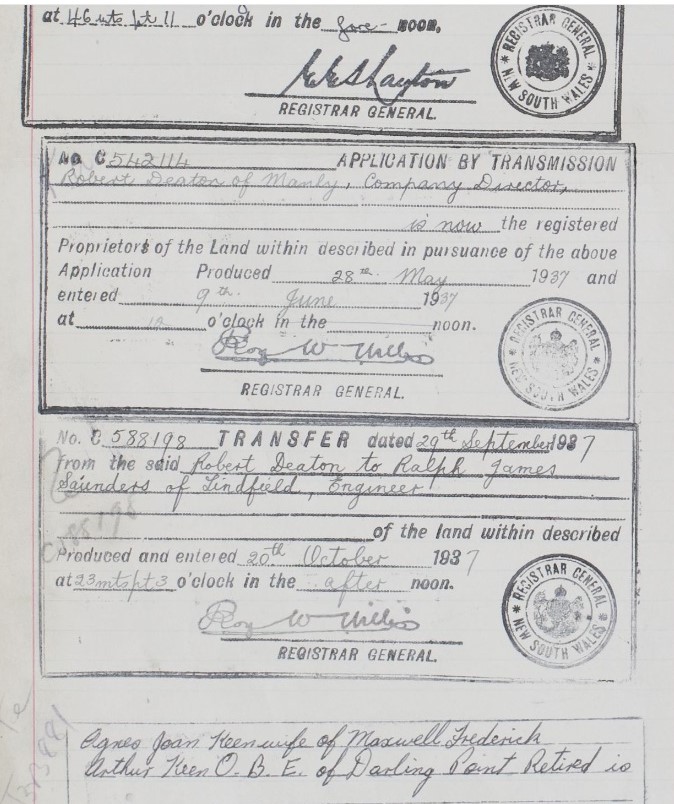 at 46 mts pt 11 o'clock in the fore- noon.
REGISTRAR GENERAL.
REGISTRAR GENERAL
NEW SOUTH WALES
No. C 542114 APPLICATION BY TRANSMISSION
Robert Deaton of Manly, Company Director,
is now the registered
Proprietors of the Land within described in pursuance of the above
Application Produced 28th May 1937 and
entered 9th June 1937
at 12 o'clock in the noon.
Roy W Willis
REGISTRAR GENERAL.
REGISTRAR GENERAL
NEW SOUTH WALES
No. C 588198 TRANSFER dated 29th September 1937
from the said Robert Deaton to Ralph James
Saunders of Lindfield, Engineer
of the land within described
C588198
Produced and entered 20th October 1937
at 23 mts pt 3 o'clock in the after noon.
Roy W Willis
REGISTRAR GENERAL.
REGISTRAR GENERAL
NEW SOUTH WALES
Agnes Joan Keen wife of Maxwell Frederick
Arthur Keen O. B. E. of Darling Point Retired is